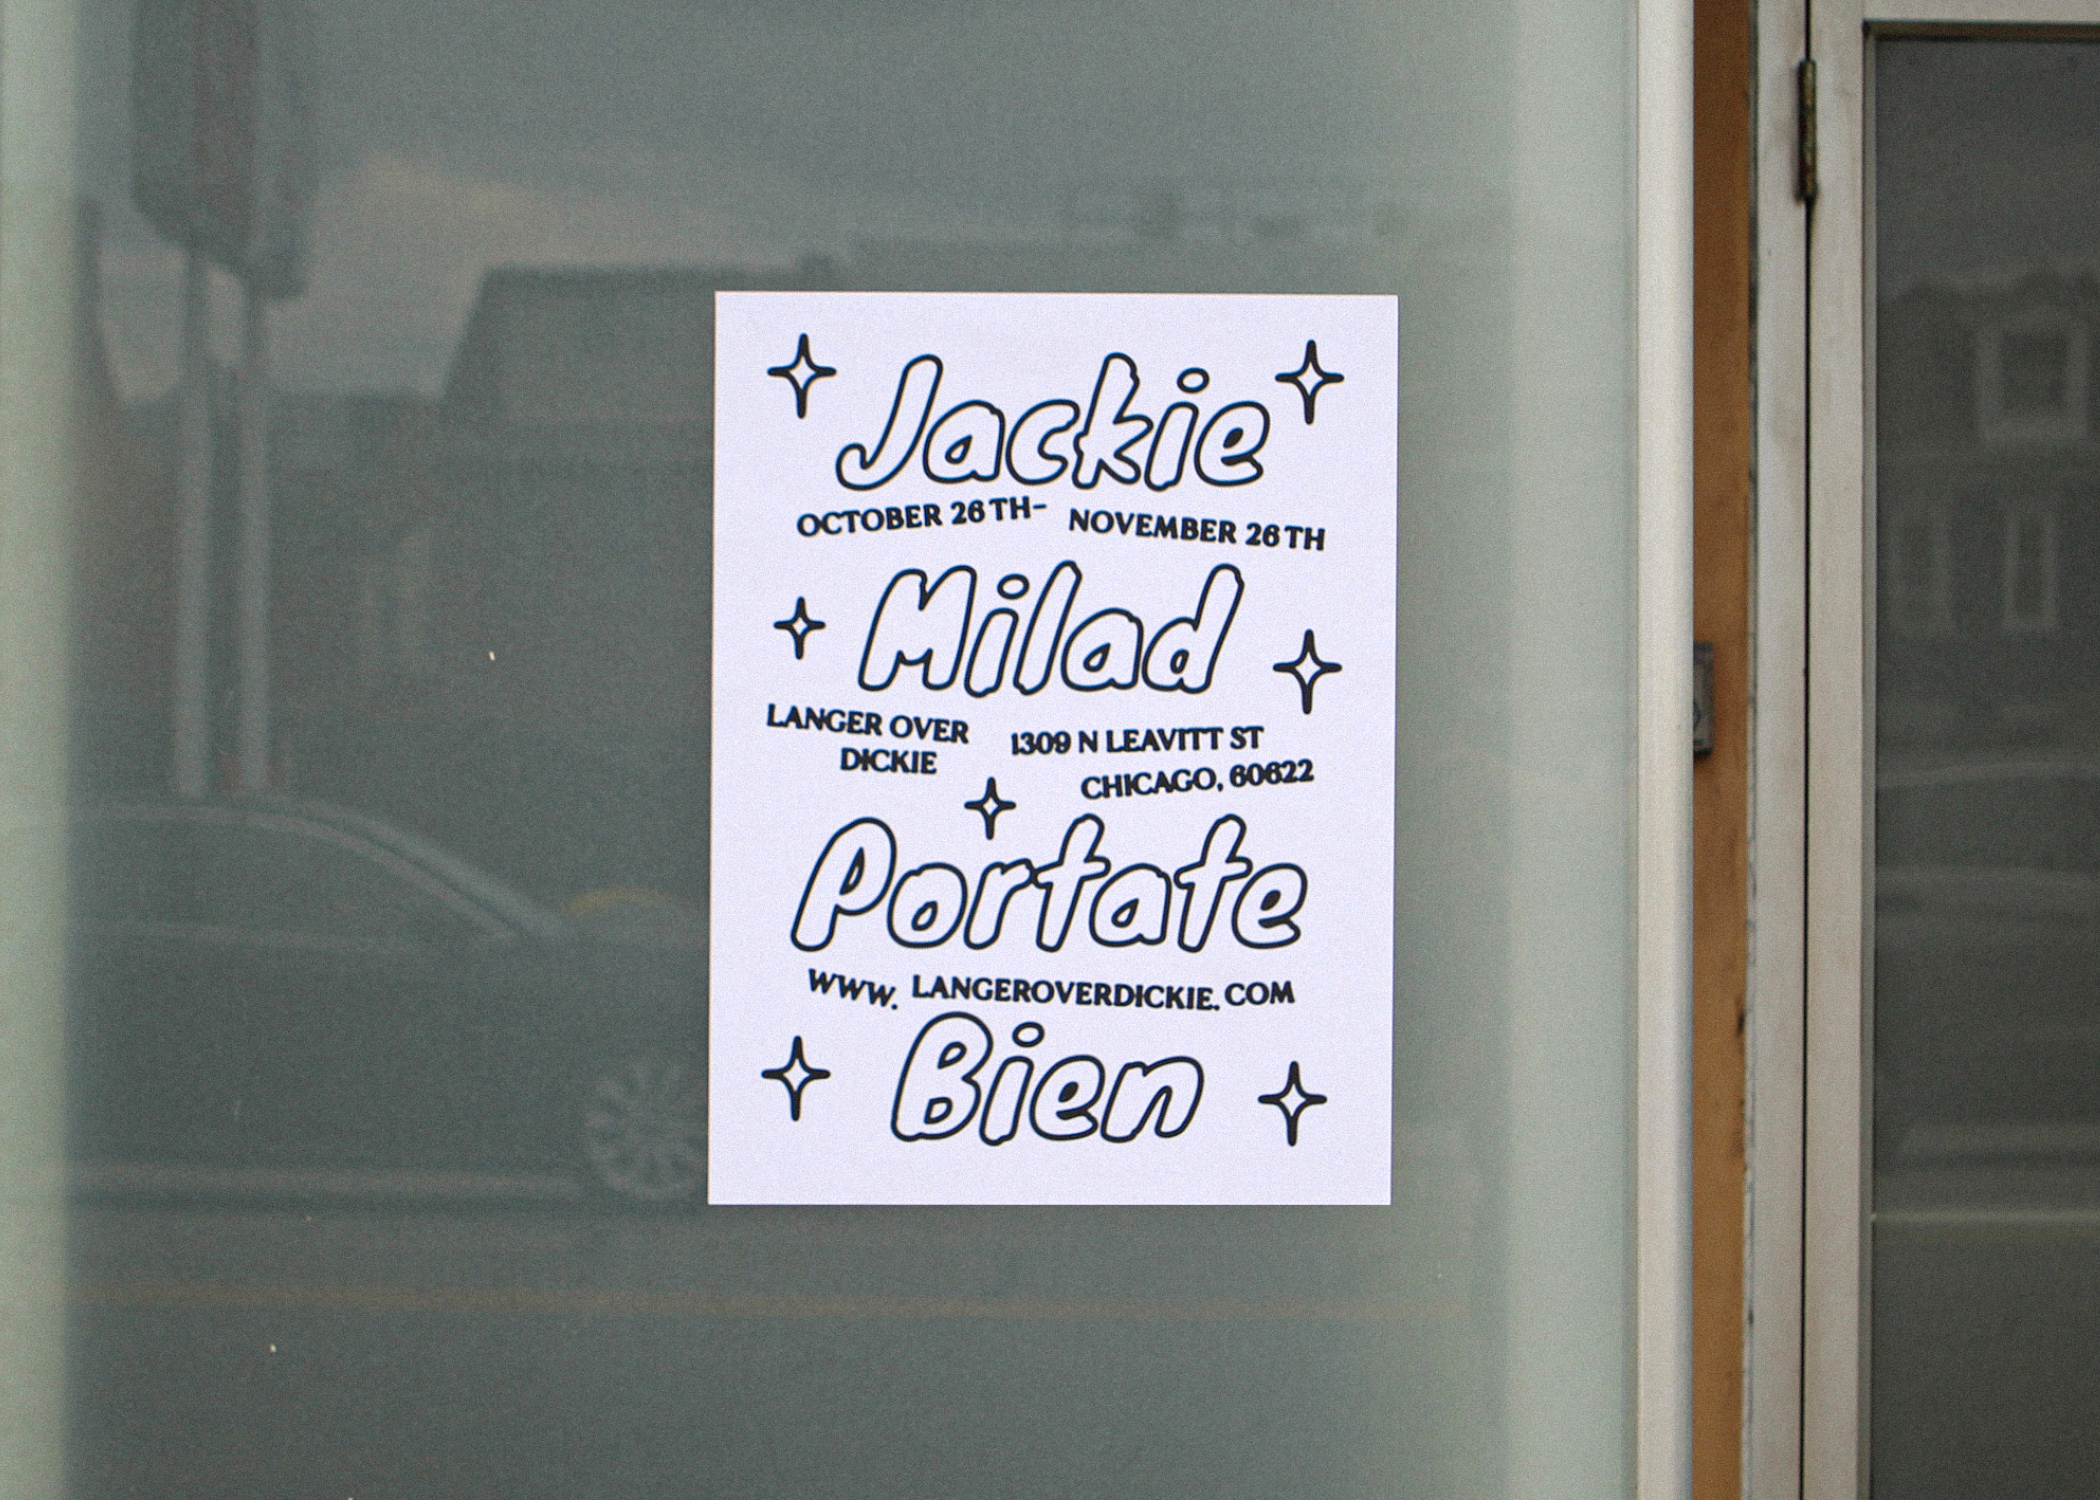 Jackie
OCTOBER 26TH- NOVEMBER 26TH
Milad
LANGER OVER
DICKIE
1309 N LEAVITT ST
CHICAGO, 60622
Portate
WWW. LANGEROVERDICKIE.COM
Bien